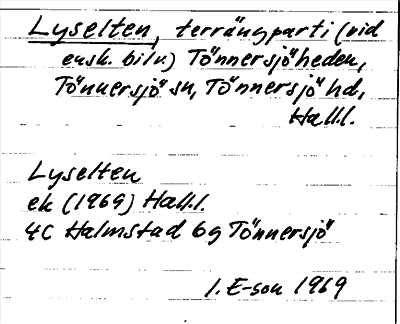 Lyselten, terrängparti (vid
ensk. bilv.) Tönnersjöheden,
Tönnersjö sn, Tönnersjö hd,
Hall.
Lyselten
ek (1969) Hall.
4C Halmstad 6g Tönnersjö
I. E-son 1969